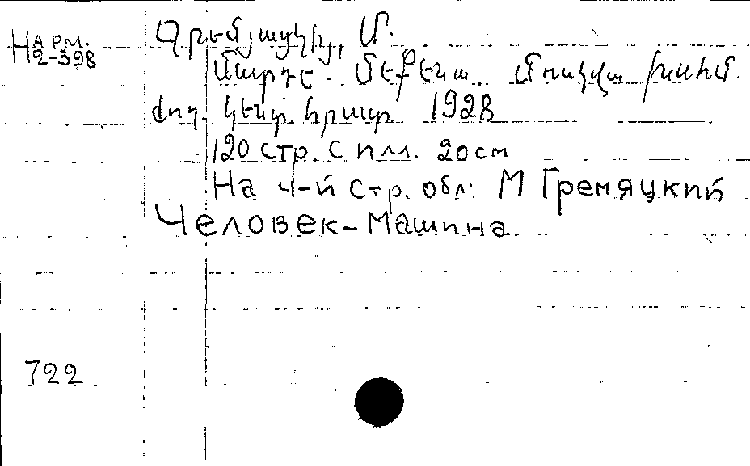 Н АРМ. 2-398
Գրեմյացկի, Մ.
Մարդը - Մեքենա. Մոսկվա ԽՍՀՄ.
ժող. կենտ. հրատ. 1928
120 стр. с илл. 20см
На 4-й стр. обл: М Гремяцкий
Человек-машина
722